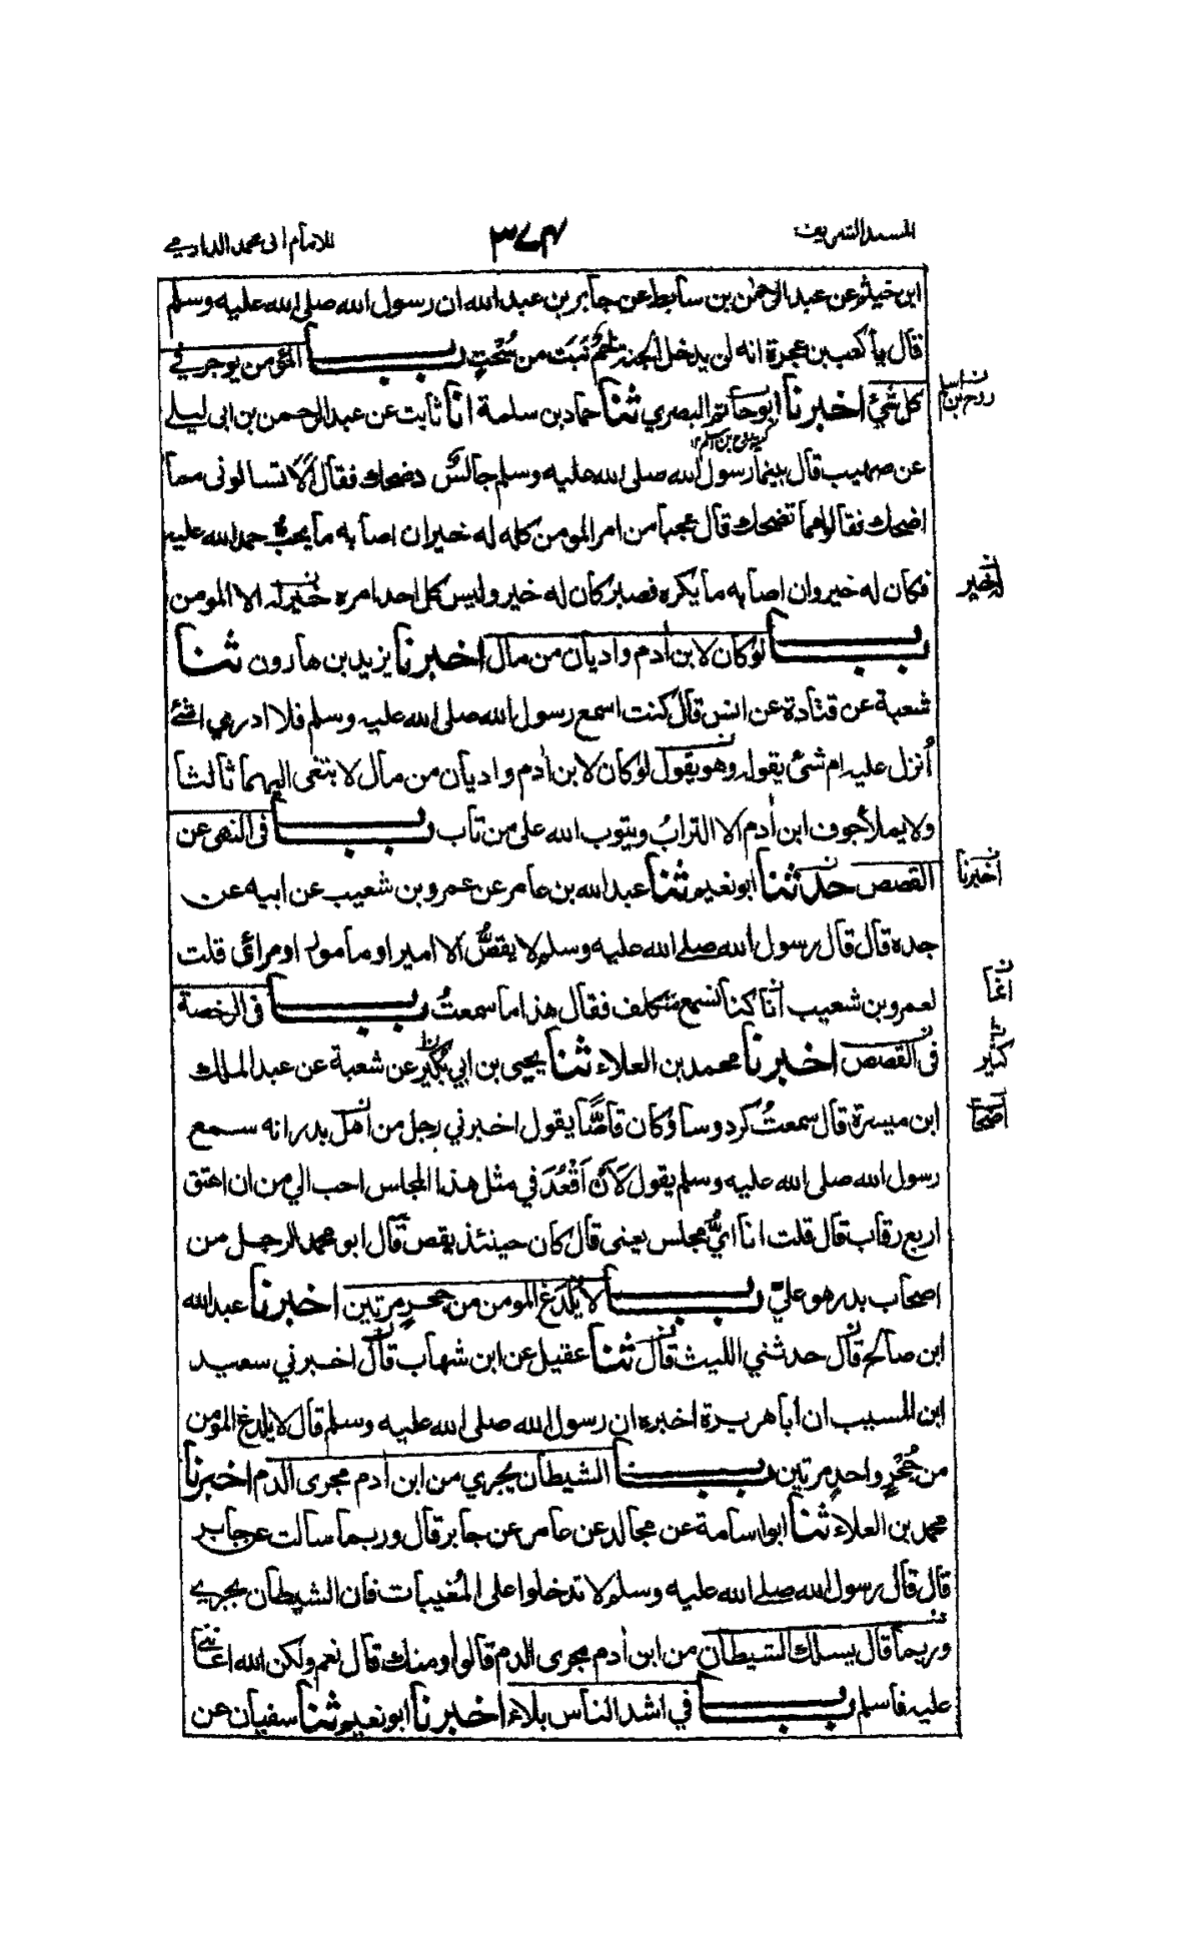 المسند الشريف
٣٧٤
للامام ابى محمد الدارمي
ابن خيثم عن عبد الرحمٰن بن سابط عن جابر بن عبد الله ان رسول الله صلى الله عليه وسلم
قال يا كعب بن عجرة انه لن يدخل الجنة لحم نَبَتَ من سُحْتٍ باب المؤمن يوجر في
كل شئ اخبرنا ابو حاتم البصري ثنا حماد بن سلمة انا ثابت عن عبد الرحمن بن ابى ليلے
روح بن اسلم
هو روح بن اسلم
عن صهيب قال بينما رسول الله صلى الله عليه وسلم جالسٌ اذ ضحك فقال الا تسالونى مما
اضحك فقالوا مما تضحك قال عجبا من امر المومن كله له خير ان اصابه ما يحبُّ حمد الله عليه
فكان له خير وان اصابه ما يكره فصبر كان له خير وليس كل احد امره خير له الا المومن
له خير
باب لو كان لابن اٰدم واديان من مال اخبرنا يزيد بن هارون ثنا
شعبة عن قتادة عن انس قال كنت اسمع رسول الله صلى الله عليه وسلم فلا ادري اشئ
اُنزل عليه ام شئ يقوله وهو يقول لو كان لابن اٰدم واديان من مال لابتغى اليهما ثالثا
ولا يملأ جوف ابن اٰدم الا الترابُ ويتوب الله على من تاب باب فى النهى عن
القصص حدثنا ابو نعيم ثنا عبد الله بن عامر عن عمرو بن شعيب عن ابيه عن
اخبرنا
جده قال قال رسول الله صلے الله عليه وسلم لا يقصُّ الا امير او مامور او مرائى قلت
لعمرو بن شعيب انا كنا نسمع متكلف فقال هذا ما سمعتُ باب فى الرخصة
انما
فى القصص اخبرنا محمد بن العلاء ثنا يحيى بن ابي بُكير عن شعبة عن عبد الملك
كثير
ابن ميسرة قال سمعتُ كردوسا وكان قاصًّا يقول اخبرني رجل من اهل بدر انه سمع
اصحاب
رسول الله صلى الله عليه وسلم يقول لَاَنْ اَقْعُدَ في مثل هذا المجلس احب الي من ان اعتق
اربع رقاب قال قلت انا ايُّ مجلس يعنى قال كان حينئذ يقص قال ابو محمد الرجل من
اصحاب بدر هو عليّ باب لا يُلْدَغ المومن من جحرٍ مرتين اخبرنا عبد الله
ابن صالح قال حدثني الليث قال ثنا عقيل عن ابن شهاب قال اخبرني سعيد
ابن المسيب ان ابا هريرة اخبره ان رسول الله صلى الله عليه وسلم قال لا يلدغ المومن
من جُحْرٍ واحدٍ مرتين باب الشيطان يجري من ابن اٰدم مجرى الدم اخبرنا
محمد بن العلاء ثنا ابو اسامة عن مجالد عن عامر عن جابر قال وربما سالت عن جابر
قال قال رسول الله صلے الله عليه وسلم لا تدخلوا على المُغيبات فان الشيطان يجرے
وربما قال يسلك الشيطان من ابن اٰدم مجرى الدم قالوا ومنك قال نعم ولكن الله اعاننے
عليه فاسلم باب في اشد الناس بلاء اخبرنا ابو نعيم ثنا سفيان عن